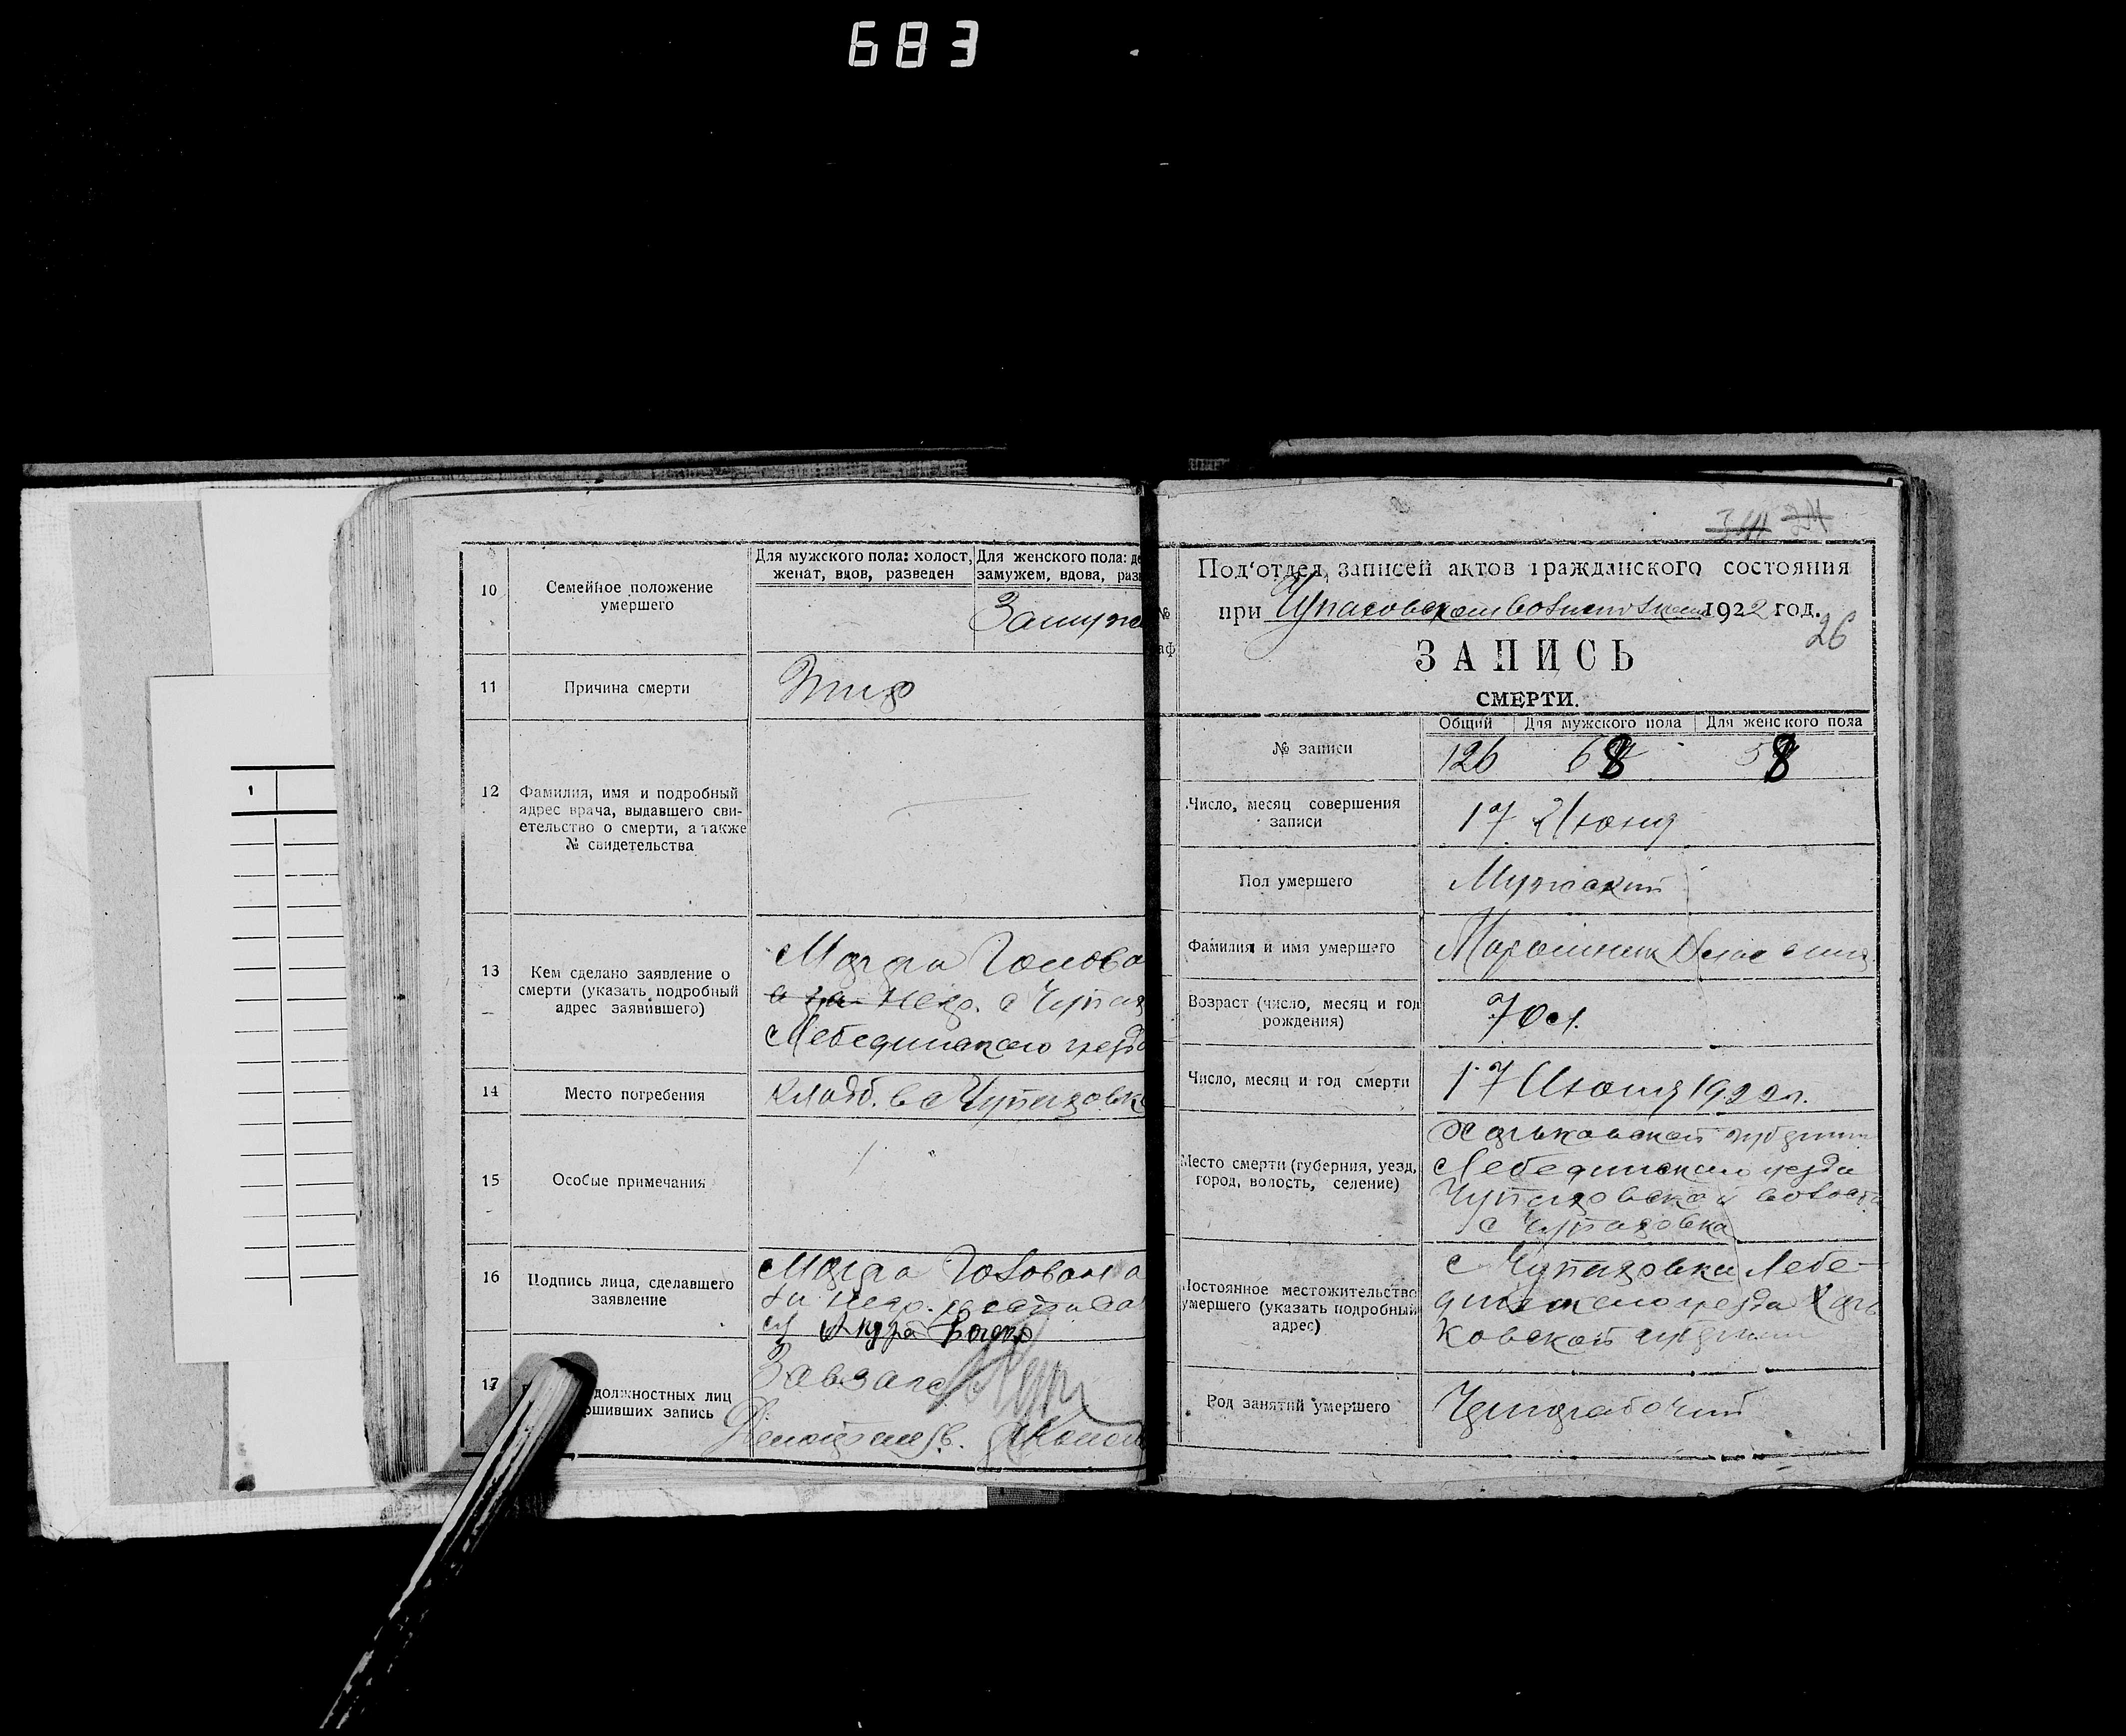 683
10
Семейное положение
умершего
Для мужского пола: холост,
женат, вдов, разведен
Для женского пола: де
замужем, вдова, раз
Замуж
11
Причина смерти
Тиф
12
Фамилия, имя и подробный
адрес врача, выдавшего сви-
етельство о смерти, а также
№ свидетельства
13
Кем сделано заявление о
смерти (указать подробный
адрес заявившего)
с Чупах
Лебединского уезда
14
Место погребения
Кладб. в с Чупаховк
15
Особые примечания
16
Подпись лица, сделавшего
заявление
17
должностных лиц
ршивших запись
Завзагс
Делопроизв.
1
№
аф
24
Под'отдел записей актов гражданского состояния
при 1922 год.
26
ЗАПИСЬ
СМЕРТИ.
Общий Для мужского пола Для женского пола
№ записи
126 68 58
Число, месяц совершения
записи
17 Июня
Пол умершего
Мужской
Фамилия и имя умершего
Марошник
Возраст (число, месяц и год
рождения)
70 л.
Число, месяц и год смерти
17 Июня 1922 г.
Место смерти (губерния, уезд,
город, волость, селение)
Харьковской губернии
Лебединского уезда
Чупаховской волости
с Чупаховка
Постоянное местожительство
умершего (указать подробный
адрес)
с Чупаховка Лебе-
динского уезда Харь
ковской губернии
Род занятий умершего
Чернорабочий